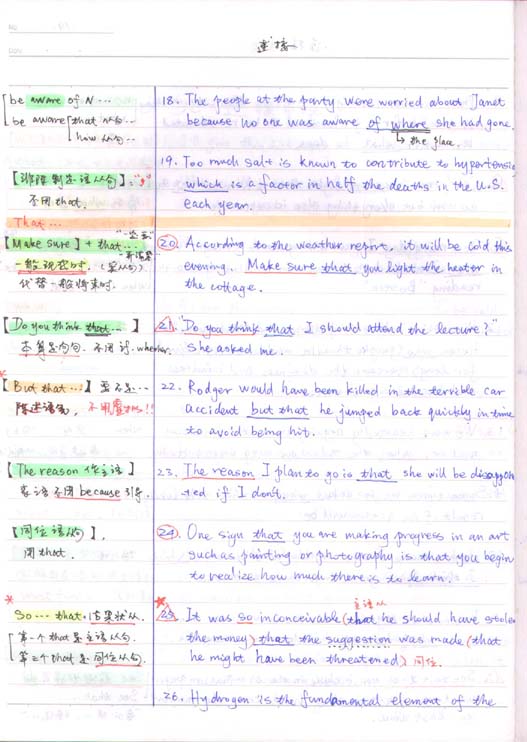 No
连接
be aware of N...
be aware that 从句...
how 从句...
18. The people at the party were worried about Janet
because no one was aware of where she had gone.
↳ the place.
19. Too much salt is known to contribute to hypertensio
【非限制定语从句】:","
which is a factor in half the deaths in the U.S.
不用that.
each year.
That...
【Make sure】+ that...
一般现在时.(宾从句)
代替一般将来时.
20. According to the weather reprt, it will be cold this
evening. Make sure that you light the heater in
the cottage.
【Do you think that...】
本身是问句. 不用 if. whether.
21. "Do you think that I should attend the lecture?"
She asked me.
【But that...】要不是...
陈述语气, 不用虚拟!!
22. Rodger would have been killed in the terrible car
accident but that he jumped back quickly in time
to avoid being hit.
【The reason 作主语】
表语不用 because 引导.
23. The reason I plan to go is that she will be disappoin
ted if I don't.
【同位语从】,
用 that.
24. One sign that you are making progress in an art
such as painting or photography is that you begin
to realize how much there is to learn.
So... that. 结果状从.
第一个that是主语从句.
第三个that是同位从句.
主语从
25. It was so inconceivable (that he should have stolen
the money) that the suggestion was made (that
he might have been threatened) 同位.
26. Hydrogen is the fundamental element of the